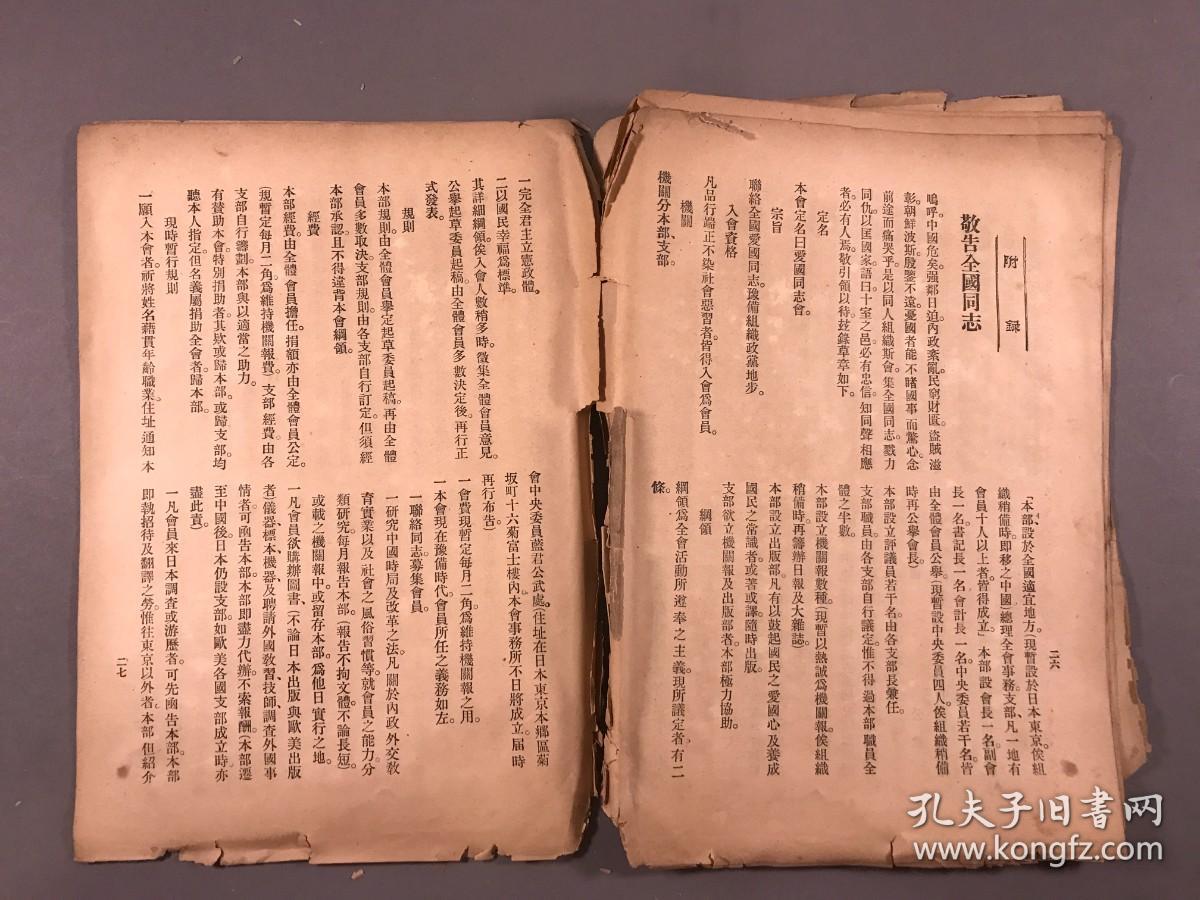 附錄
敬告全國同志
嗚呼。中國危矣。强鄰日迫。內政紊亂。民窮財匱。盜賊滋
彰。朝鮮波斯。殷鑒不遠。憂國者能不睹國事而驚心。念
前途而痛哭乎。是以同人組織斯會。集全國同志。戮力
同仇。以匡國家。語曰。十室之邑。必有忠信。知同聲相應
者。必有人焉。敬引領以待。茲錄草章如下。
定名
本會定名曰愛國同志會。
宗旨
聯絡全國愛國同志。豫備組織政黨地步。
入會資格
凡品行端正不染社會惡習者。皆得入會爲會員。
機關
機關分本部、支部。
二六
「本部」設於全國適宜地方。(現暫設於日本東京。俟組
織稍備時。即移之中國)總理全會事務。「支部」凡一地有
會員十人以上者。皆得成立。本部設會長一名。副會
長一名。書記長一名。會計長一名。中央委員若干名。皆
由全體會員公舉。(現暫設中央委員四人。俟組織稍備
時。再公舉會長。)
本部設立評議員若干名。由各支部長兼任。
支部職員。由各支部自行議定。惟不得過本部職員全
體之半數。
本部設立機關報數種。(現暫以熱誠爲機關報。俟組織
稍備時。再籌辦日報及大雜誌)
本部設立出版部。凡有以鼓起國民之愛國心及養成
國民之常識者。或著或譯。隨時出版。
支部欲立機關報及出版部者。本部極力協助。
綱領
綱領爲全會活動所遵奉之主義。現所議定者有二
條。
一完全君主立憲政體。
二以國民幸福爲標準。
其詳細綱領。俟入會人數稍多時。徵集全體會員意見。
公舉起草委員起稿。由全體會員多數決定後。再行正
式發表。
規則
本部規則。由全體會員舉定起草委員起稿。再由全體
會員多數取決。支部規則。由各支部自行訂定。但須經
本部承認。且不得違背本會綱領。
經費
本部經費。由全體會員擔任。捐額亦由全體會員公定。
(規暫定每月二角。爲維持機關報費)支部經費。由各
支部自行籌劃。本部與以適當之助力。
有贊助本會。特別捐助者。其欵或歸本部。或歸支部。均
聽本人指定。但名義屬捐助全會者。歸本部。
現時暫行規則
一願入本會者。祈將姓名藉貫年齡職業住址通知本
會中央委員藍君公武處。(住址在日本東京本鄉區菊
坂町十六菊富士樓內。本會事務所不日將成立。屆時
再行布告)
一會費現暫定每月二角。爲維持機關報之用。
一本會現在豫備時代。會員所任之義務如左。
一聯絡同志募集會員。
一研究中國時局及改革之法。凡關於內政外交教
育實業。以及社會之風俗習慣等。就會員之能力。分
類研究。每月報告本部。(報告不拘文體。不論長短)
或載之機關報中。或留存本部。爲他日實行之地。
一凡會員欲購辦圖書(不論日本出版與歐美出版
者)儀器標本機器及聘請外國敎習技師調查外國事
情者。可函告本部。本部即盡力代辦。不索報酬。(本部遷
至中國後。日本仍設支部。如歐美各國支部成立時。亦
盡此責)
一凡會員來日本調查或游歷者。可先函告本部。本部
即執招待及翻譯之勞。惟往東京以外者。本部但紹介
二七
孔夫子旧书网
www.kongfz.com